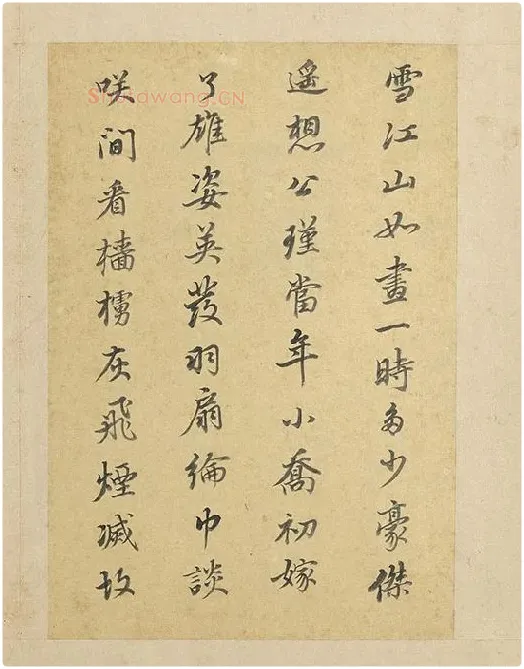 雪江山如畫一時多少豪傑
遥想公瑾當年小喬初嫁
了雄姿英發羽扇綸巾談
咲間看檣櫓灰飛煙滅故